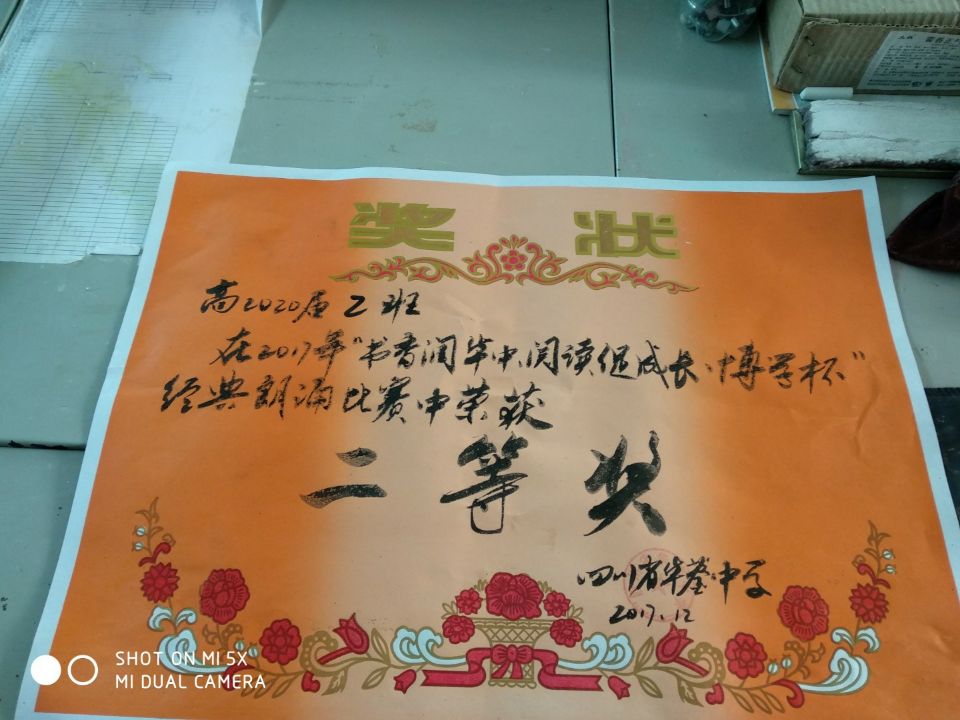 奖 状
高2020届2班
在2017年"书香润华中,阅读促成长·博学杯"
经典朗诵比赛中荣获
二等奖
四川省华蓥中学
2017.12
SHOT ON MI 5X
MI DUAL CAMERA